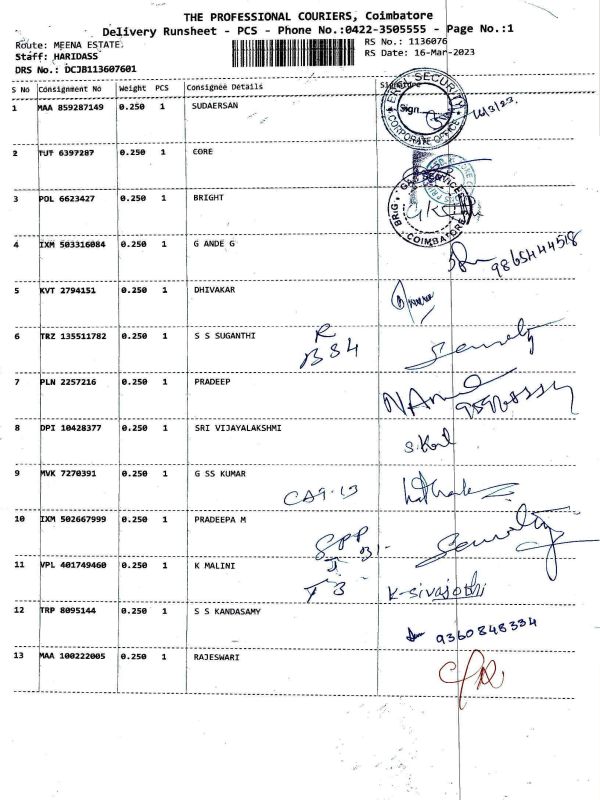 THE PROFESSIONAL COURIERS, Coimbatore
Delivery Runsheet - PCS - Phone No.:0422-3505555 - Page No.:1
Route: MEENA ESTATE RS No.: 1136076
Staff: HARIDASS RS Date: 16-Mar-2023
DRS No.: DCJB113607601
S No Consignment No Weight PCS Consignee Details Signature
1 MAA 859287149 0.250 1 SUDAERSAN
SECURITY
Sign
CORPORATE OFFICE
16/3/23
2 TUT 6397287 0.250 1 CORE
3 POL 6623427 0.250 1 BRIGHT
COIMBATORE
4 IXM 503316084 0.250 1 G ANDE G
9865444518
5 KVT 2794151 0.250 1 DHIVAKAR
6 TRZ 135511782 0.250 1 S S SUGANTHI
R
B34
Security
7 PLN 2257216 0.250 1 PRADEEP
8 DPI 10428377 0.250 1 SRI VIJAYALAKSHMI
9 MVK 7270391 0.250 1 G SS KUMAR
CA9-13
10 IXM 502667999 0.250 1 PRADEEPA M
Security
11 VPL 401749460 0.250 1 K MALINI
K-Sivajothi
12 TRP 8095144 0.250 1 S S KANDASAMY
9360848334
13 MAA 100222005 0.250 1 RAJESWARI